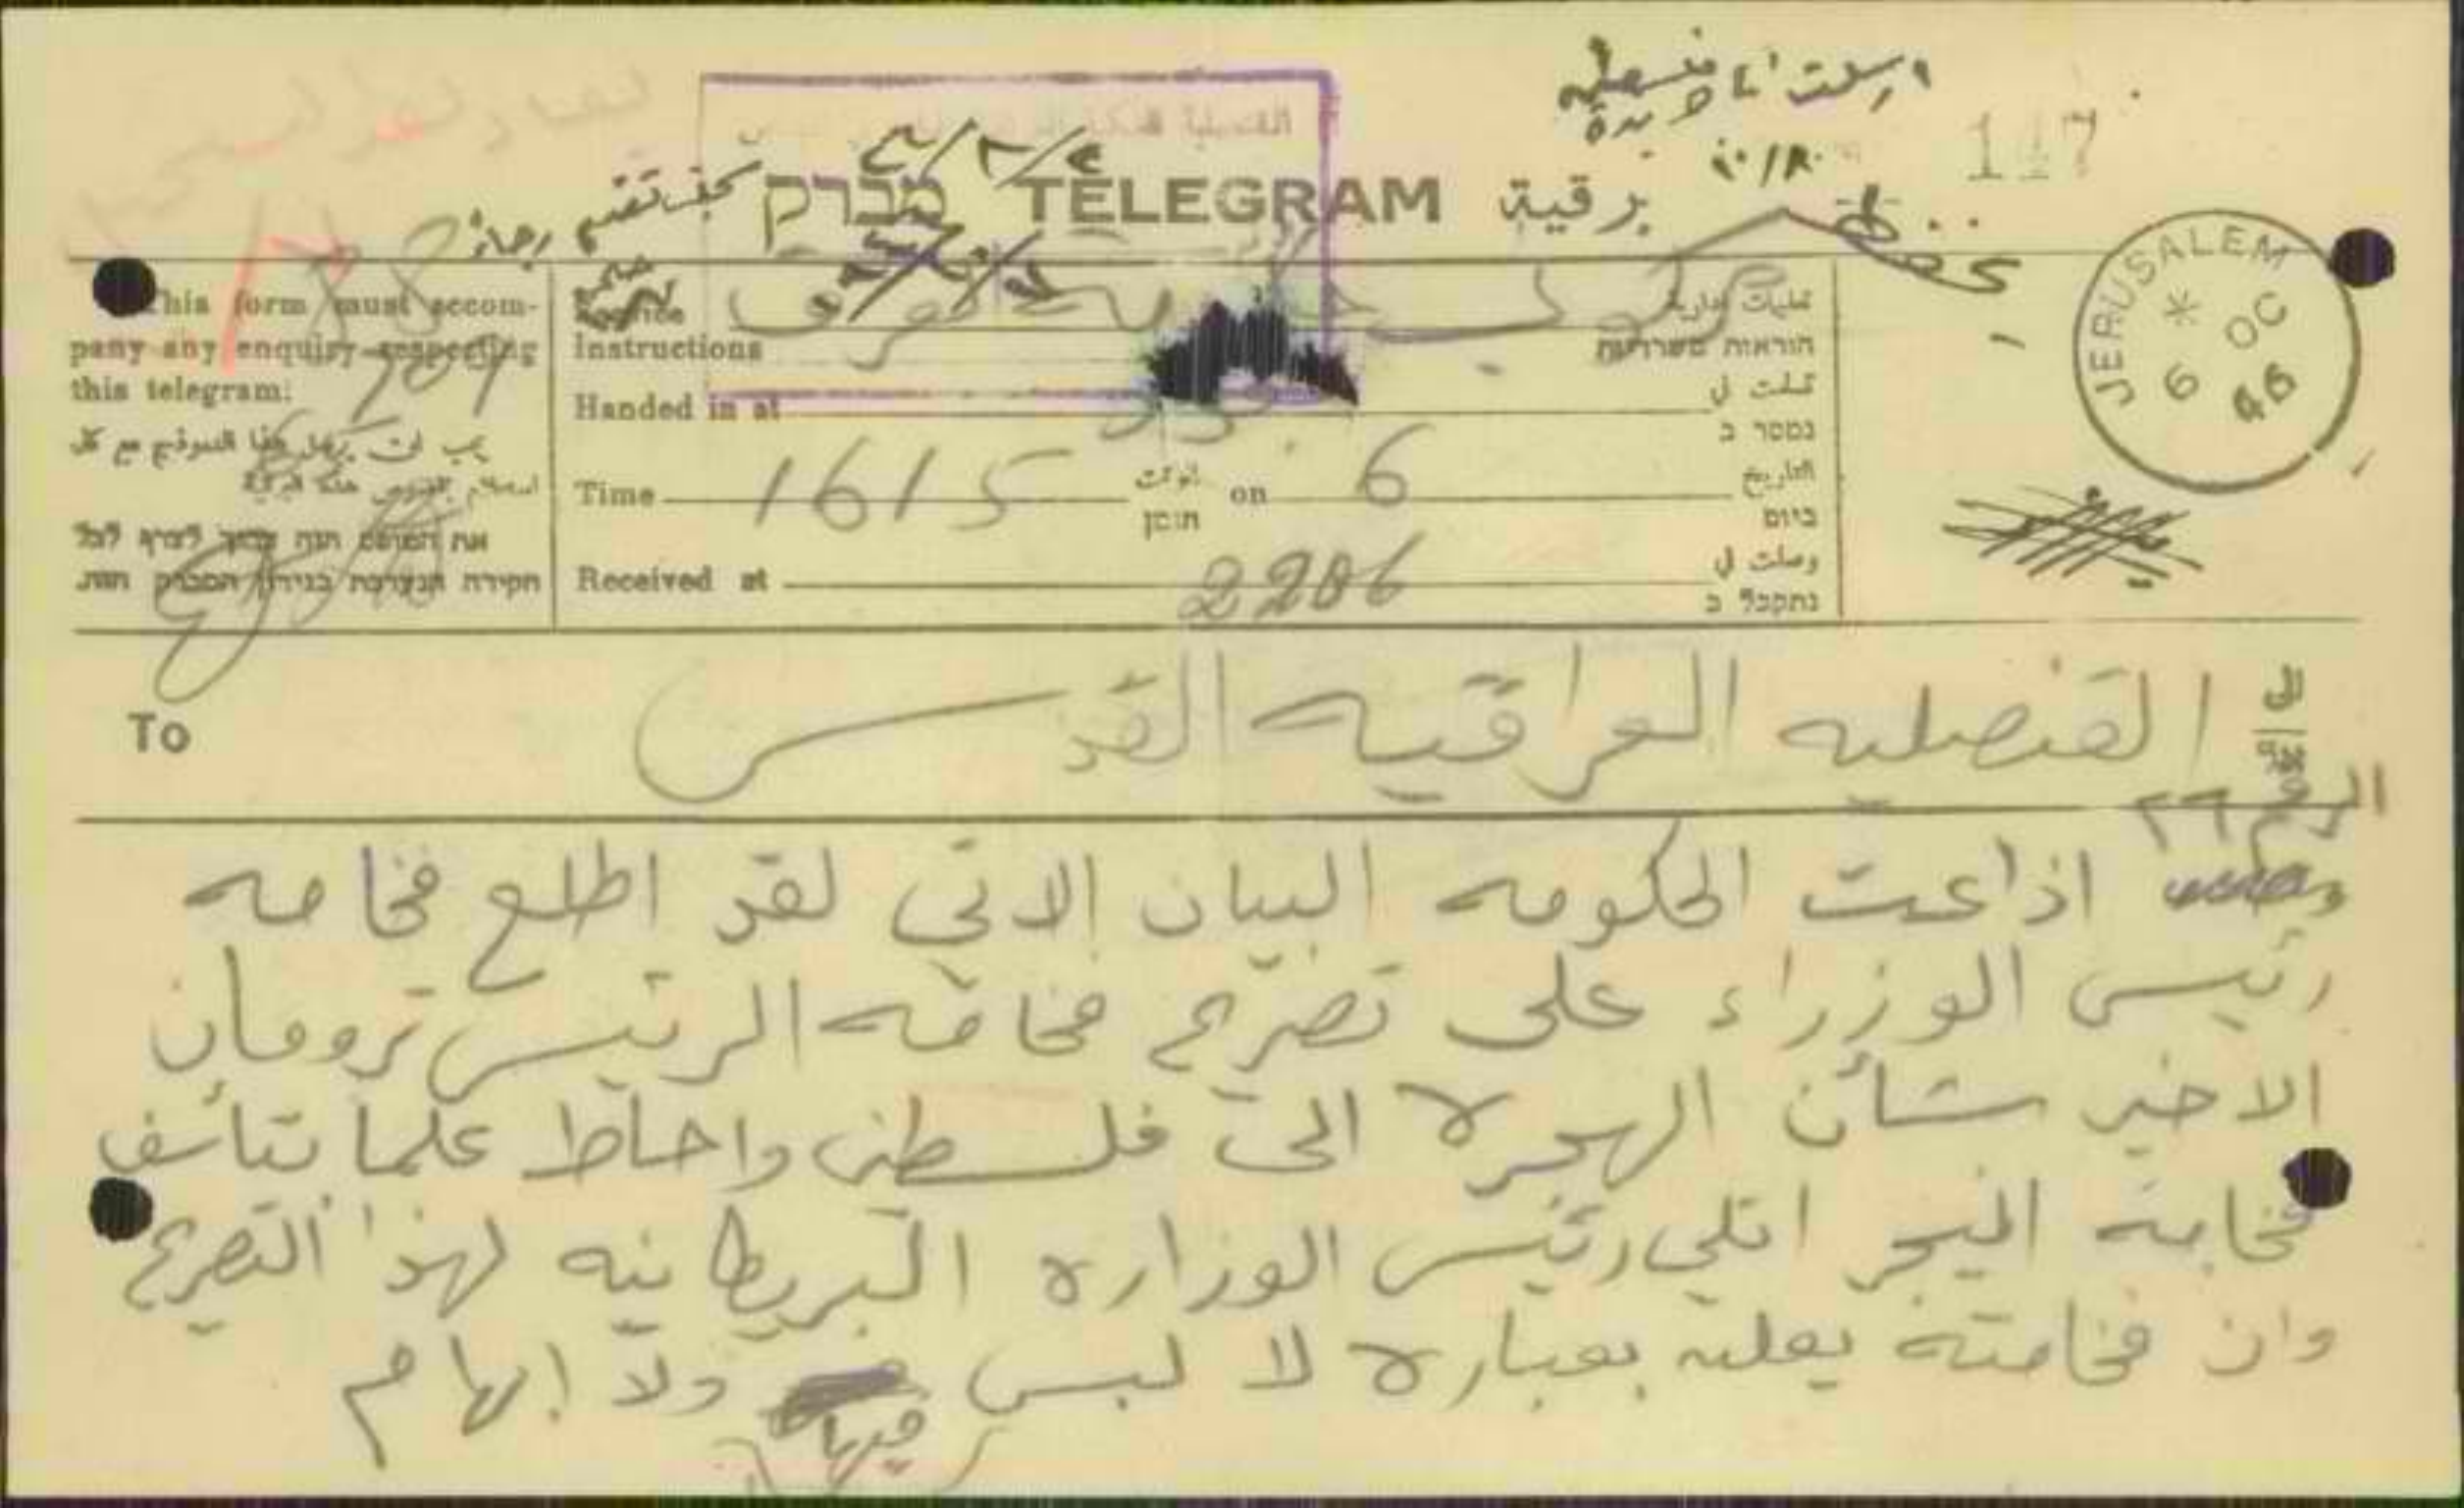 ارسلت الى
117
١٠/٨
מברק TELEGRAM برقية
تحفظ
JERUSALEM
6 OC 46
This form must accom-
pany any enquiry respecting
this telegram:
يجب ان يرفق هذا النموذج مع كل
استعلام بخصوص هذه البرقية
את הטופס הזה צריך לצרף לכל
חקירה הנערכת בנידון המברק הזה.
Service
Instructions
تعليمات مصلحية
הוראות משרדיות
Handed in at
سلمت في
נמסר ב
Time 1615 الوقت הזמן on 6 التاريخ ביום
Received at 2206 وصلت في נתקבל ב
To القنصليه العراقيه القدس الى
الرقم ٢٩
اذاعت الحكومه البيان الاتي لقد اطلع فخامه
رئيس الوزراء على تصريح فخامه الرئيس ترومان
الاخير بشأن الهجره الى فلسطين واحاط علما بتأسف
فخامة الميجر اتلي رئيس الوزاره البريطانيه لهذا التصريح
وان فخامته يعلن بعباره لا لبس فيها ولا ابهام